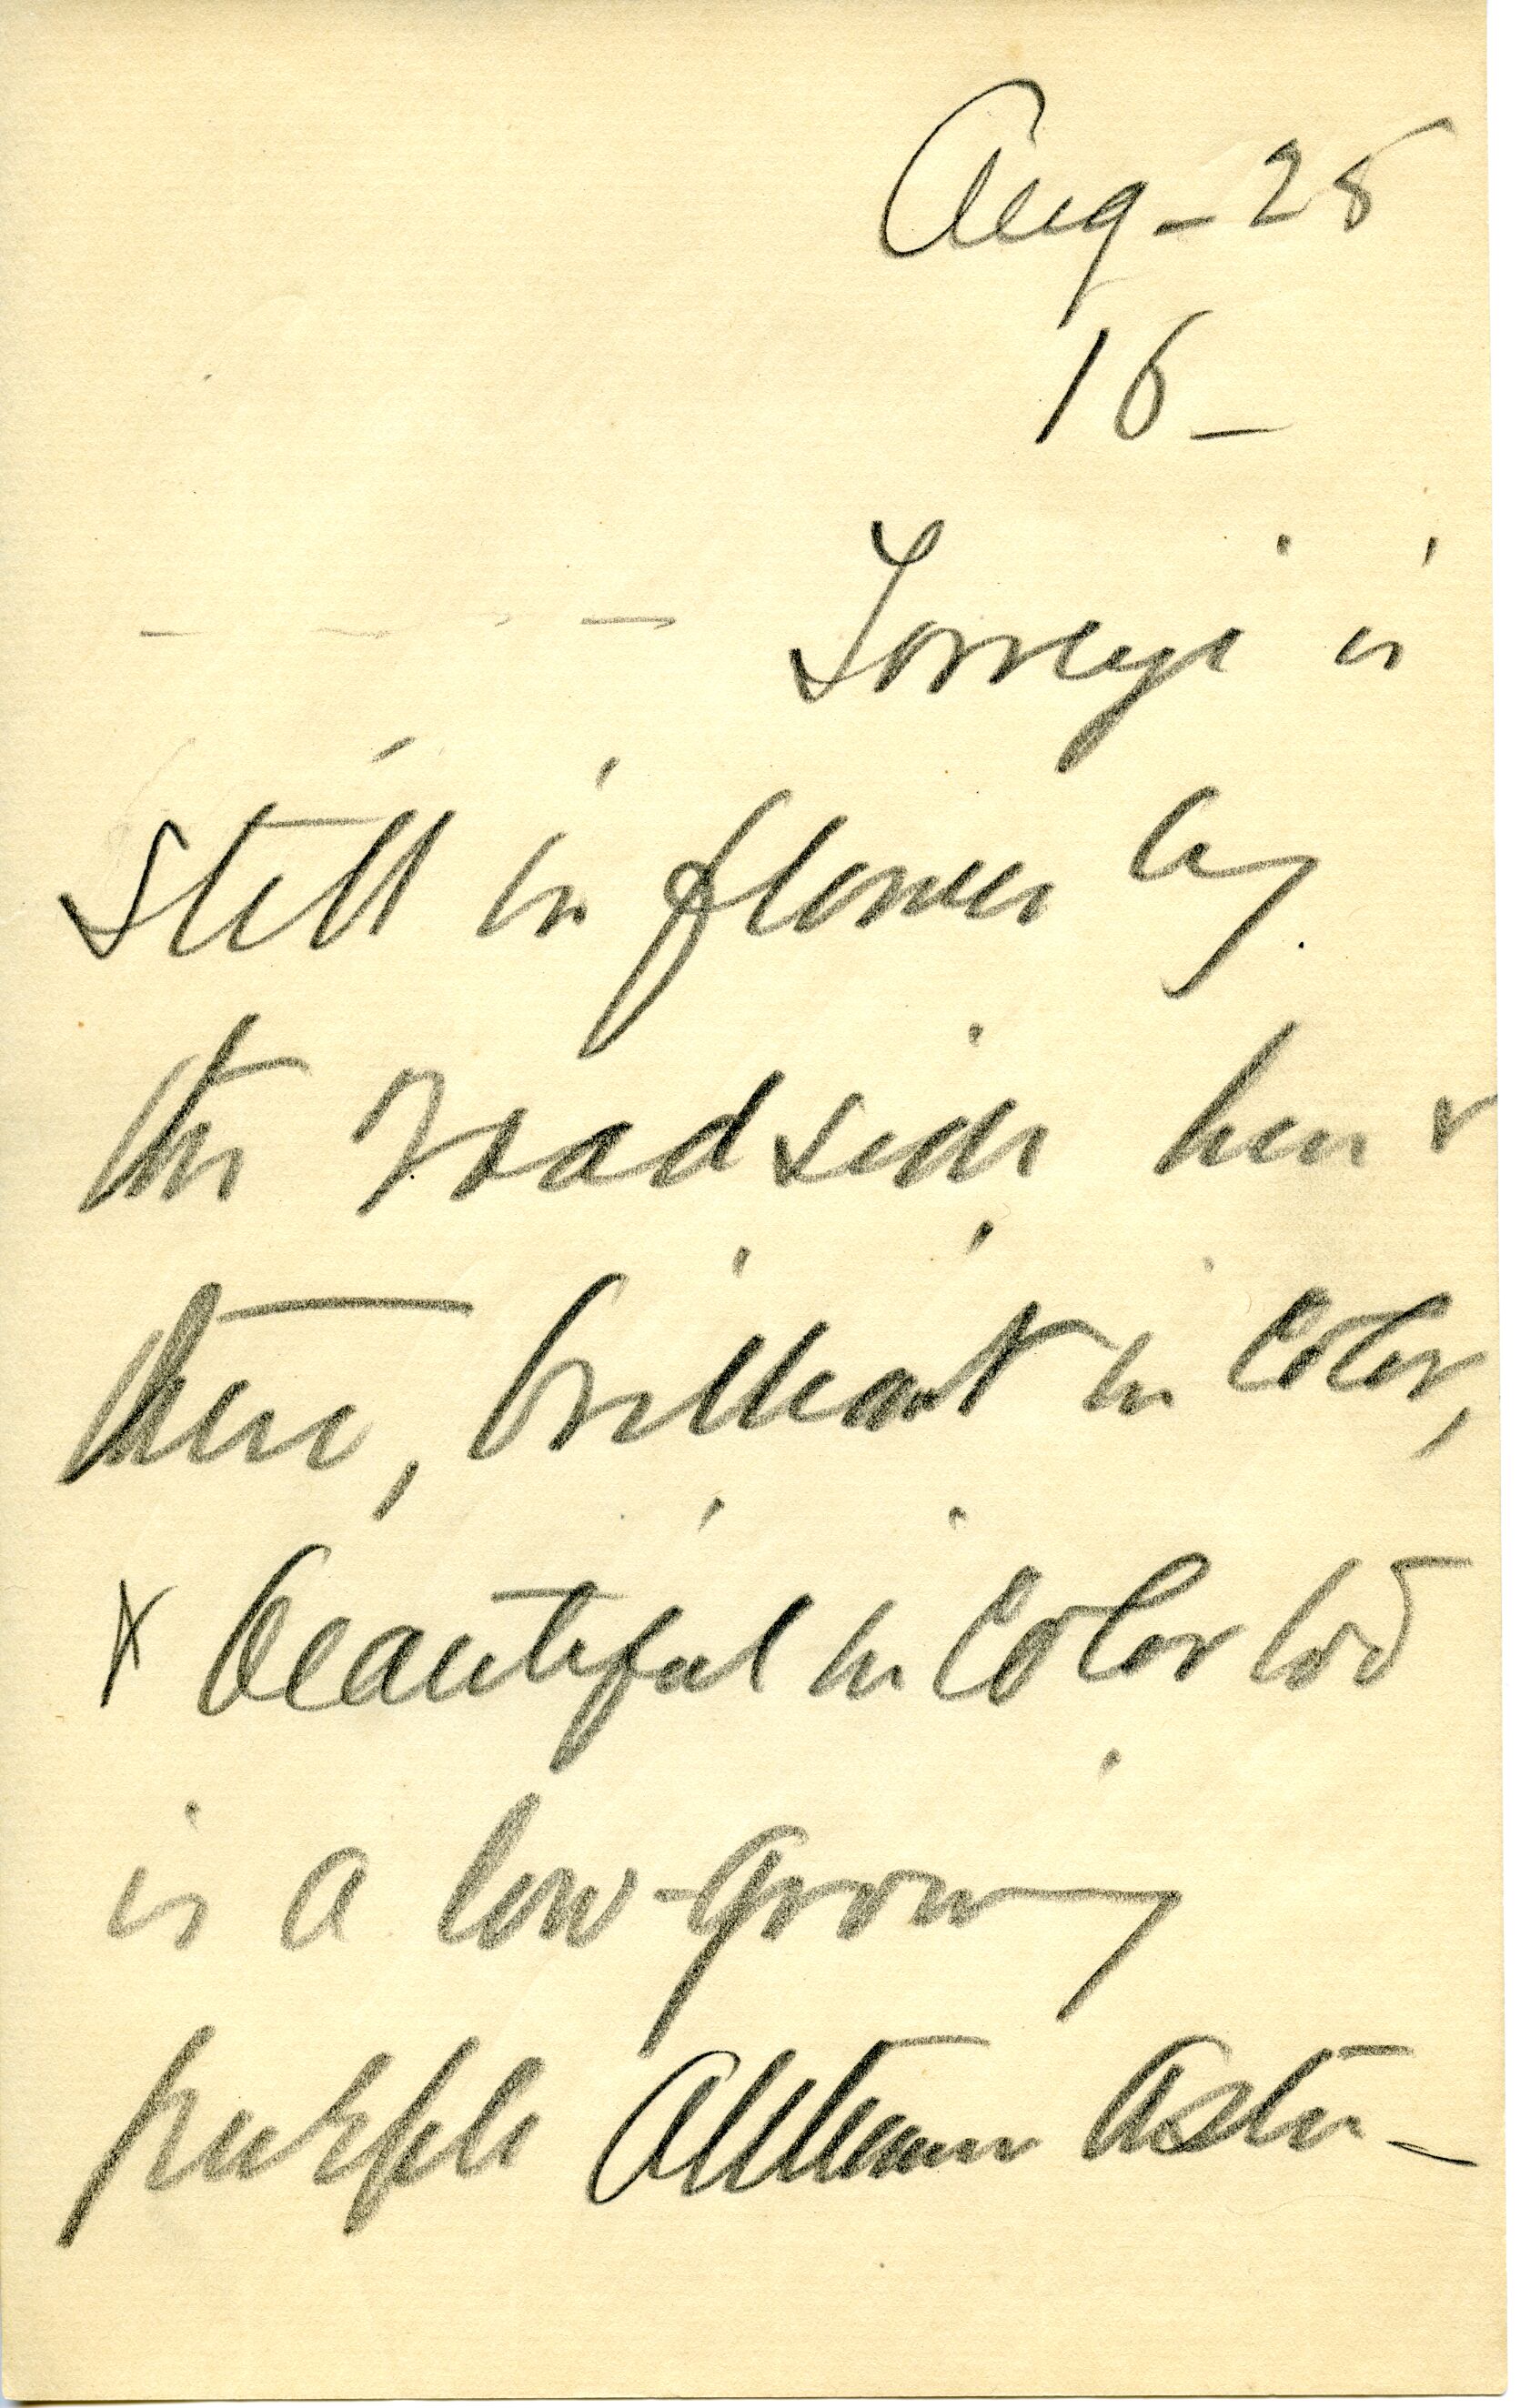 Aug - 28
16 -
- - Torreyi is
still in flower by
the roadside here &
there, brilliant in color,
& beautiful in color too
is a low-growing
purple Autumn Aster -